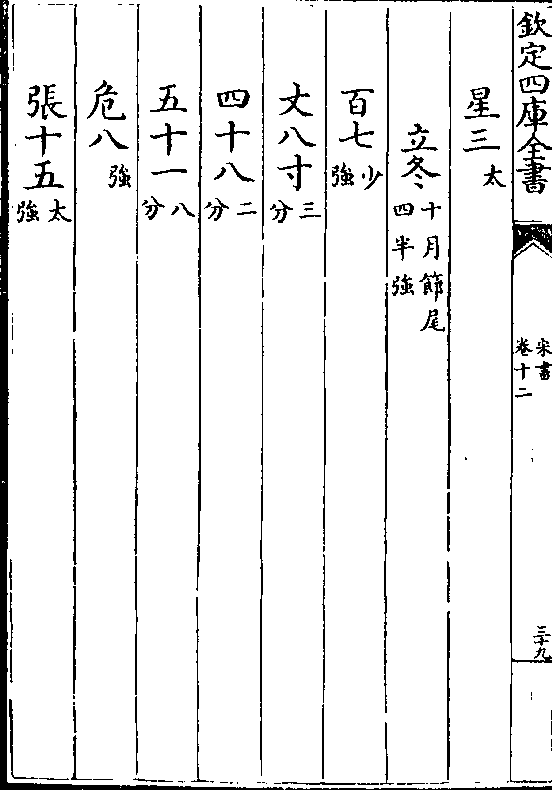 欽定四庫全書
宋書
卷十二
三十九
星三太
立冬十月節尾四半強
百七少強
丈八寸三分
四十八二分
五十一八分
危八強
張十五太強